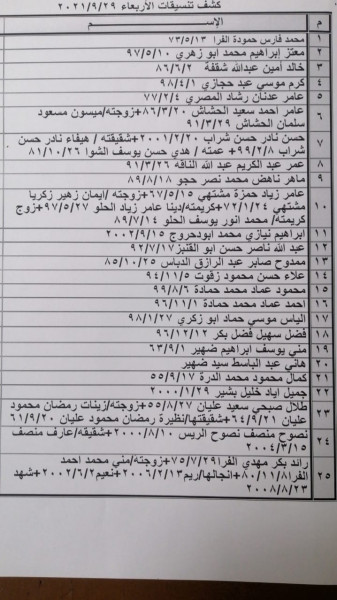 كشف تنسيقات الأربعاء ٢٠٢١/٩/٢٩
م الإســـم
١ محمد فارس حمودة الفرا ٧٣/٥/١٣
٢ معتز إبراهيم محمد ابو زهري ٩٧/٥/١٠
٣ خالد أمين عبدالله شقفة ٨٦/٦/٢
٤ كرم موسي عبد حجازي ٩٨/٤/١
٥ عامر عدنان رشاد المصري ٧٧/٢/٤
٦ عامر احمد سعيد الحشاش ٨٦/٣/٢٠+زوجته/ميسون مسعود
سلمان الحشاش ٩١/٣/٢٩
٧ حسن نادر حسن شراب ٢٠٠١/٢/٢٠+شقيقته / هيفاء نادر حسن
شراب ٩٩/٢/٨+ عمته / هدي حسن يوسف الشوا ٨١/١٠/٢٦
٨ عمر عبد الكريم عبد الله الناقه ٩١/٣/٢٦
٩ ماهر ناهض محمد نصر حجو ٨٩/٨/١٨
١٠ عامر زياد حمزة مشتهي ٦٧/٥/١٥+زوجته /ايمان زهير زكريا
مشتهي ٧٢/١/٢٤+كريمته/دينا عامر زياد الحلو ٩٧/٥/٢٧+زوج
كريمته/ محمد انور يوسف الحلو ٨٩/٧/١٤
١١ ابراهيم نيازي محمد ابودحروج ٢٠٠٢/٩/١٥
١٢ عبد الله ناصر حسن ابو القنبز ٩٢/٧/١٧
١٣ ممدوح صابر عبد الرازق الدباس ٨٥/١٠/٢٥
١٤ علاء حسن محمود زقوت ٩٤/١١/٥
١٥ محمود عماد محمد حمادة ٩٩/٨/٦
١٦ احمد عماد محمد حمادة ٩٦/١١/١
١٧ الياس موسي حماد ابو زكري ٩٨/١/٢٧
١٨ فضل سهيل فضل بكر ٩٦/١٢/١٢
١٩ مني يوسف ابراهيم ضهير ٦٣/٩/١
٢٠ هاني عبد الباسط سيد ضهير
٢١ كمال محمود محمد الدرة ٥٥/٩/١٧
٢٢ جميل اياد خليل بشير ٢٠٠٠/١/٢٩
٢٣ طلال صبحي سعيد عليان ٥٥/٨/٢٧+زوجته/زينات رمضان محمود
عليان ٦٤/٩/٢١+شقيقتها/نظيرة رمضان محمود عليان ٦١/٩/٢٠
٢٤ نصوح منصف نصوح الريس ٢٠٠٠/٨/١٠+شقيقه/عارف منصف
٢٠٠٤/٣/١٥
٢٥ رائد بكر مهدي الفرا ٧٥/٧/٢٩+زوجته/مني محمد احمد
الفرا ٨٠/١١/٨+انجالها/ريم ٢٠٠٦/٢/١٣+نعيم ٢٠٠٢/٦/٢+شهد
٢٠٠٨/٨/٢٣